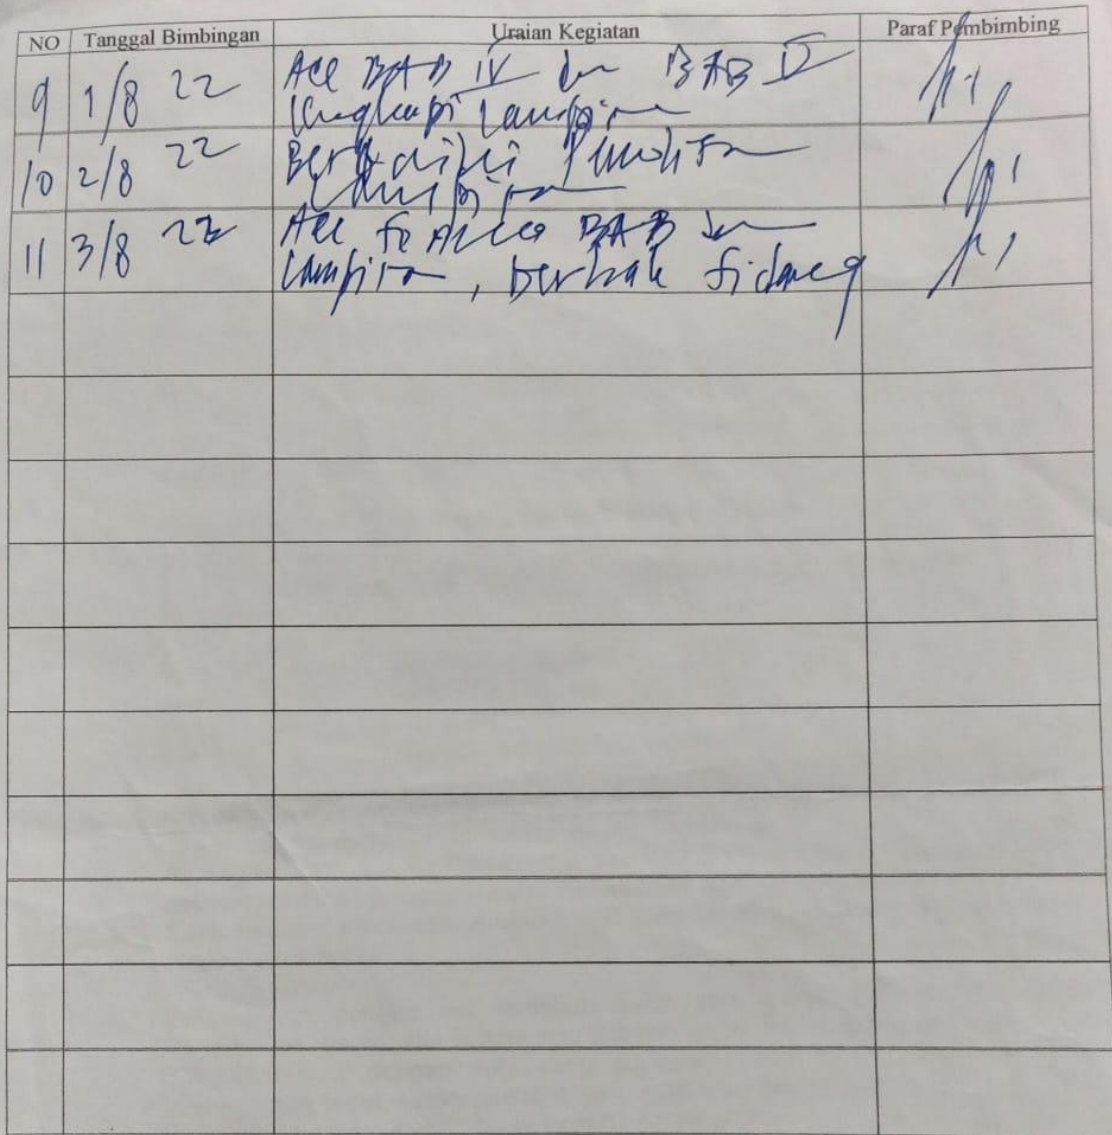 NO Tanggal Bimbingan Uraian Kegiatan Paraf Pembimbing
9 1/8 22 Acc BAB IV dan BAB V
lengkapi Lampiran
10 2/8 22
Lampiran
11 3/8 22 Acc BAB dan
Lampiran, berhak sidang